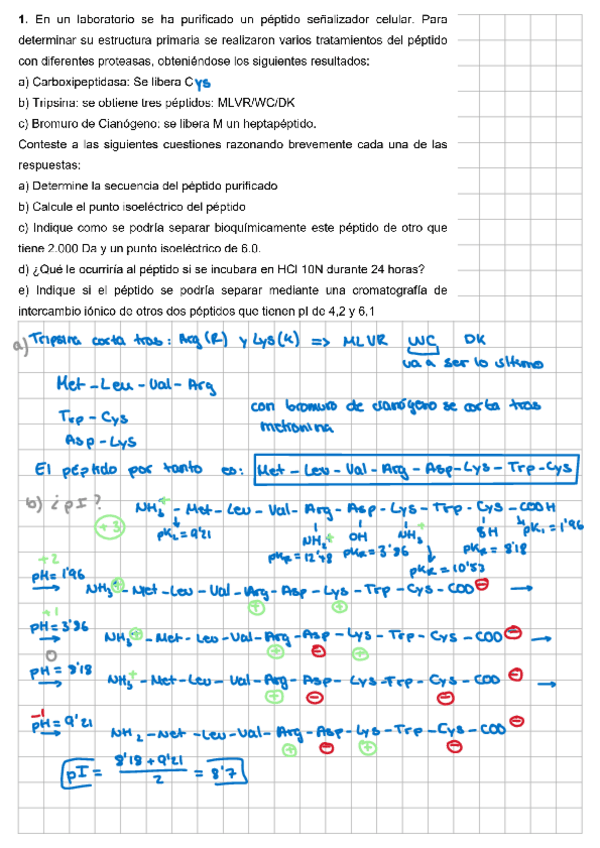 1. En un laboratorio se ha purificado un péptido señalizador celular. Para
determinar su estructura primaria se realizaron varios tratamientos del péptido
con diferentes proteasas, obteniéndose los siguientes resultados:
a) Carboxipeptidasa: Se libera Cys
b) Tripsina: se obtiene tres péptidos: MLVR/WC/DK
c) Bromuro de Cianógeno: se libera M un heptapéptido.
Conteste a las siguientes cuestiones razonando brevemente cada una de las
respuestas:
a) Determine la secuencia del péptido purificado
b) Calcule el punto isoeléctrico del péptido
c) Indique como se podría separar bioquímicamente este péptido de otro que
tiene 2.000 Da y un punto isoeléctrico de 6.0.
d) ¿Qué le ocurriría al péptido si se incubara en HCl 10N durante 24 horas?
e) Indique si el péptido se podría separar mediante una cromatografía de
intercambio iónico de otros dos péptidos que tienen pI de 4,2 y 6,1
a) Tripsina corta tras: Arg (R) y Lys (K) => MLVR WC DK
va a ser lo último
Met - Leu - Val - Arg
Trp - Cys
Asp - Lys
con bromuro de cianógeno se corta tras
metionina
El péptido por tanto es: Met - Leu - Val - Arg - Asp - Lys - Trp - Cys
b) ¿pI?
NH3+ - Met - Leu - Val - Arg - Asp - Lys - Trp - Cys - COOH
+3
pK2 = 9'21
NH2+ OH NH3+ SH pK1 = 1'96
pKR = 12'48 pKR = 3'86 pKR = 8'18
pKR = 10'53
+2
pH = 1'96
NH3+ - Met - Leu - Val - Arg - Asp - Lys - Trp - Cys - COO -
+ +
+1
pH = 3'86
NH3+ - Met - Leu - Val - Arg - Asp - Lys - Trp - Cys - COO -
+ - +
0
pH = 8'18
NH3+ - Met - Leu - Val - Arg - Asp - Lys - Trp - Cys - COO -
+ - -
-1
pH = 9'21
NH2 - Met - Leu - Val - Arg - Asp - Lys - Trp - Cys - COO -
+ - + -
pI = 8'18 + 9'21 / 2 = 8'7